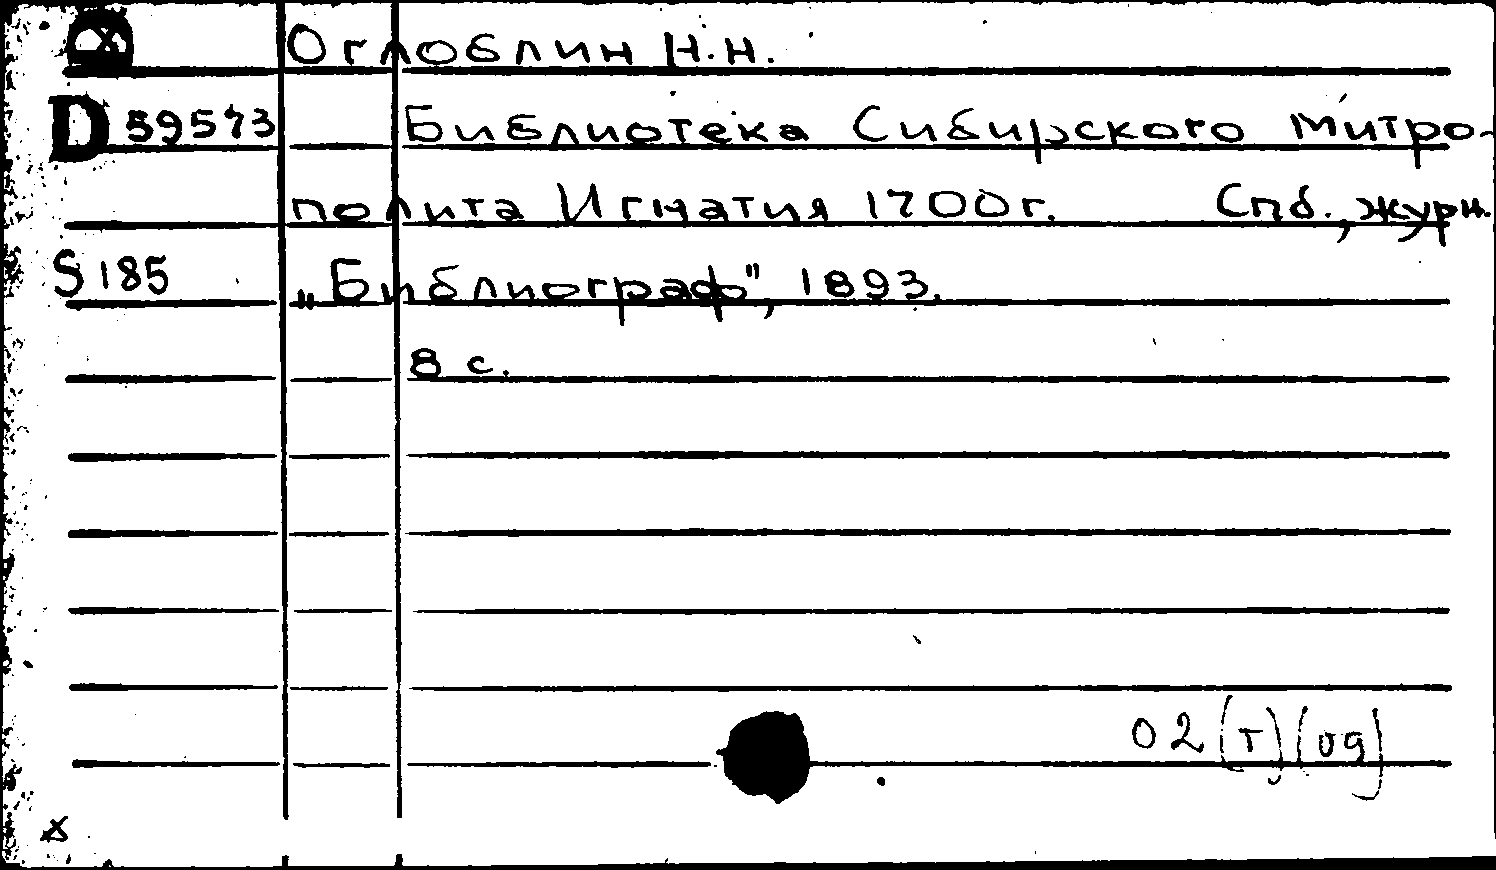 Оглоблин Н.Н.
D 59573 Библиотека Сибирского Митро-
полита Игнатия 1700г. Спб., журн.
S 185 „Библиограф", 1893.
8 с.
02(т)(09)
x